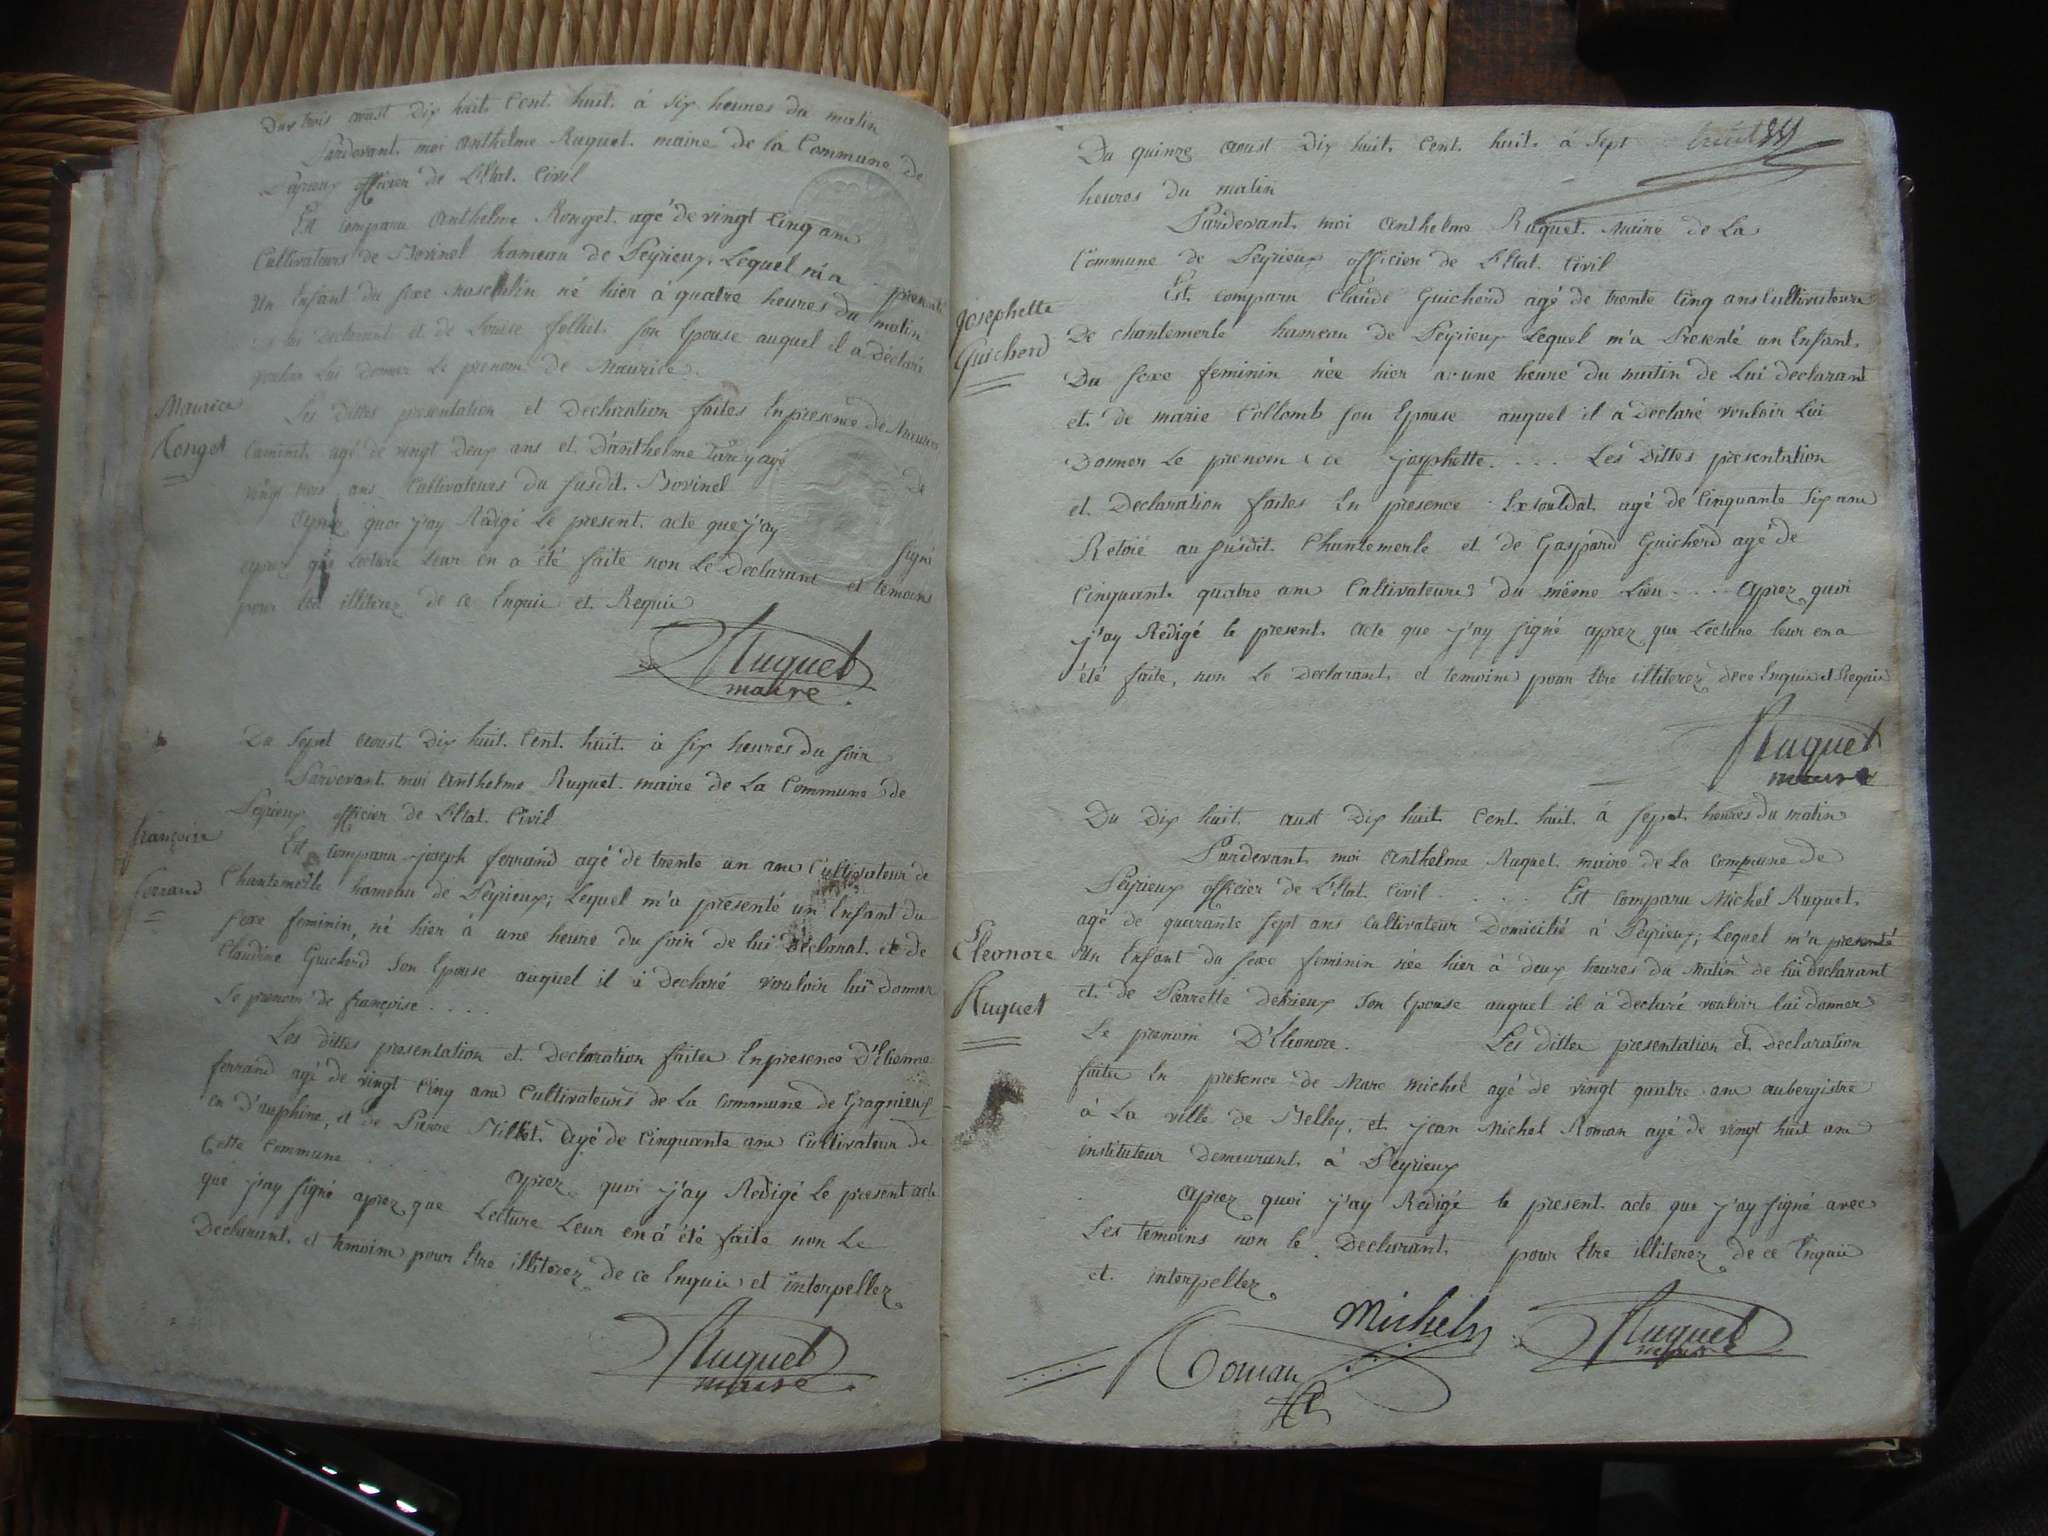 Du trois aoust Dix huit. Cent. huit. á six heures du matin
Pardevant. moi anthelme Ruguet. maire de la Commune de
Peyrieux officier de L'Etat. Civil
Est comparu anthelme Ronget. agé de vingt Cinq ans
Cultivateurs de Bovinel hameau de Peyrieux. Lequel m'a presenté
Un Enfant du sexe masculin né hier á quatre heures du matin
de lui Declarant et de Louise folliet. son Epouse auquel il a declaré
vouloir Lui donner Le prenom de Maurice.
Maurice
Ronget
Les dittes presentation et Declaration faites En presence de Maurice
agé de vingt Deux ans et D'anthelme agé De
vingt trois ans Cultivateurs du susdit. Bovinel
aprez quoi j'ay Redigé Le present. acte que j'ay signé
aprez que Lecture Leur en a été faite non Le Declarant et temoins
pour Etre illiterez de ce Enquis et. Requis
Ruguet
maire
Du Sept aoust Dix huit. Cent. huit. à six heures du soir
Pardevant. moi anthelme Ruguet. maire de La Commune de
Peyrieux officier de L'Etat. Civil
françoise
ferrand
Est comparu joseph ferrand agé de trente un ans Cultivateur de
Chantemerle hameau de Peyrieux; Lequel m'a presenté un Enfant du
sexe feminin, né hier á une heure du soir de lui Declarat. et de
Claudine Guicherd Son Epouse auquel il à declaré vouloir lui donner
Le prenom de françoise . . . .
Les dittes presentation et. Declaration faites En presence D'Etienne
ferrand agé de vingt Cinq ans Cultivateurs de La commune de Gragnieux
en D'auphine, et de Pierre Millet. agé de Cinquante ans Cultivateur de
Cette Commune . . . . aprez quoi j'ay Redigé Le present acte
que j'ay signé aprez que Lecture Leur en á été faite non Le
Declarant. et temoins pour Etre illiterez de ce Enquis et interpellez
Ruguet
maire
Du quinze aoust Dix huit. Cent. huit. á Sept
heures du matin
Pardevant. moi anthelme Ruguet. Maire de La
Commune de Peyrieux officier de L'Etat. Civil
josephette
Guicherd
Est. comparu Claude Guicherd agé de trente Cinq ans Cultivateur
De chantemerle hameau de Peyrieux Lequel m'a Presenté un Enfant.
Du sexe feminin née hier a une heure du matin de Lui declarant
et. de marie Collomb son Epouse auquel il a declaré vouloir Lui
Donner Le prenom de josephette. . . . Les dittes presentation
et. Declaration faites En presence Exsouldat. agé de Cinquante Six ans
Retiré au susdit. Chantemerle et de Gaspard Guicherd agé de
Cinquante quatre ans Cultivateurs du même Lieu . . . aprez quoi
j'ay Redigé le present. acte que j'ay signé aprez que Lecture leur en a
été faite, non Le Declarant. et temoins pour Etre illiterez de ce Enquis et Requis
Ruguet
maire
Du Dix huit aust Dix huit. Cent. huit. á sept. heures du matin
Pardevant moi anthelme Ruguet. maire de La commune de
Peyrieux officier de L'Etat. Civil . . . . Est comparu Michel Ruguet.
agé de quarante sept ans Cultivateur Domicilié à Peyrieux; Lequel m'a presenté
Eleonore
Ruguet
Un Enfant du sexe feminin née hier à deux heures du Matin de lui declarant
et. de Pierrette derieux Son Epouse auquel il à declaré vouloir lui donner
Le prenom D'Eleonore. Les dittes presentation et. Declaration
faites En presence de Marc michel agé de vingt quatre ans aubergistre
à La ville de Belley, et. jean Michel Roman agé de vingt huit ans
instituteur demeurant. à Peyrieux
aprez quoi j'ay Redigé le present. acte que j'ay signé avec
Les temoins non le Declarant. pour Etre illiterez de ce Enquis
et. interpellez
Michel
Roman
Ruguet
maire